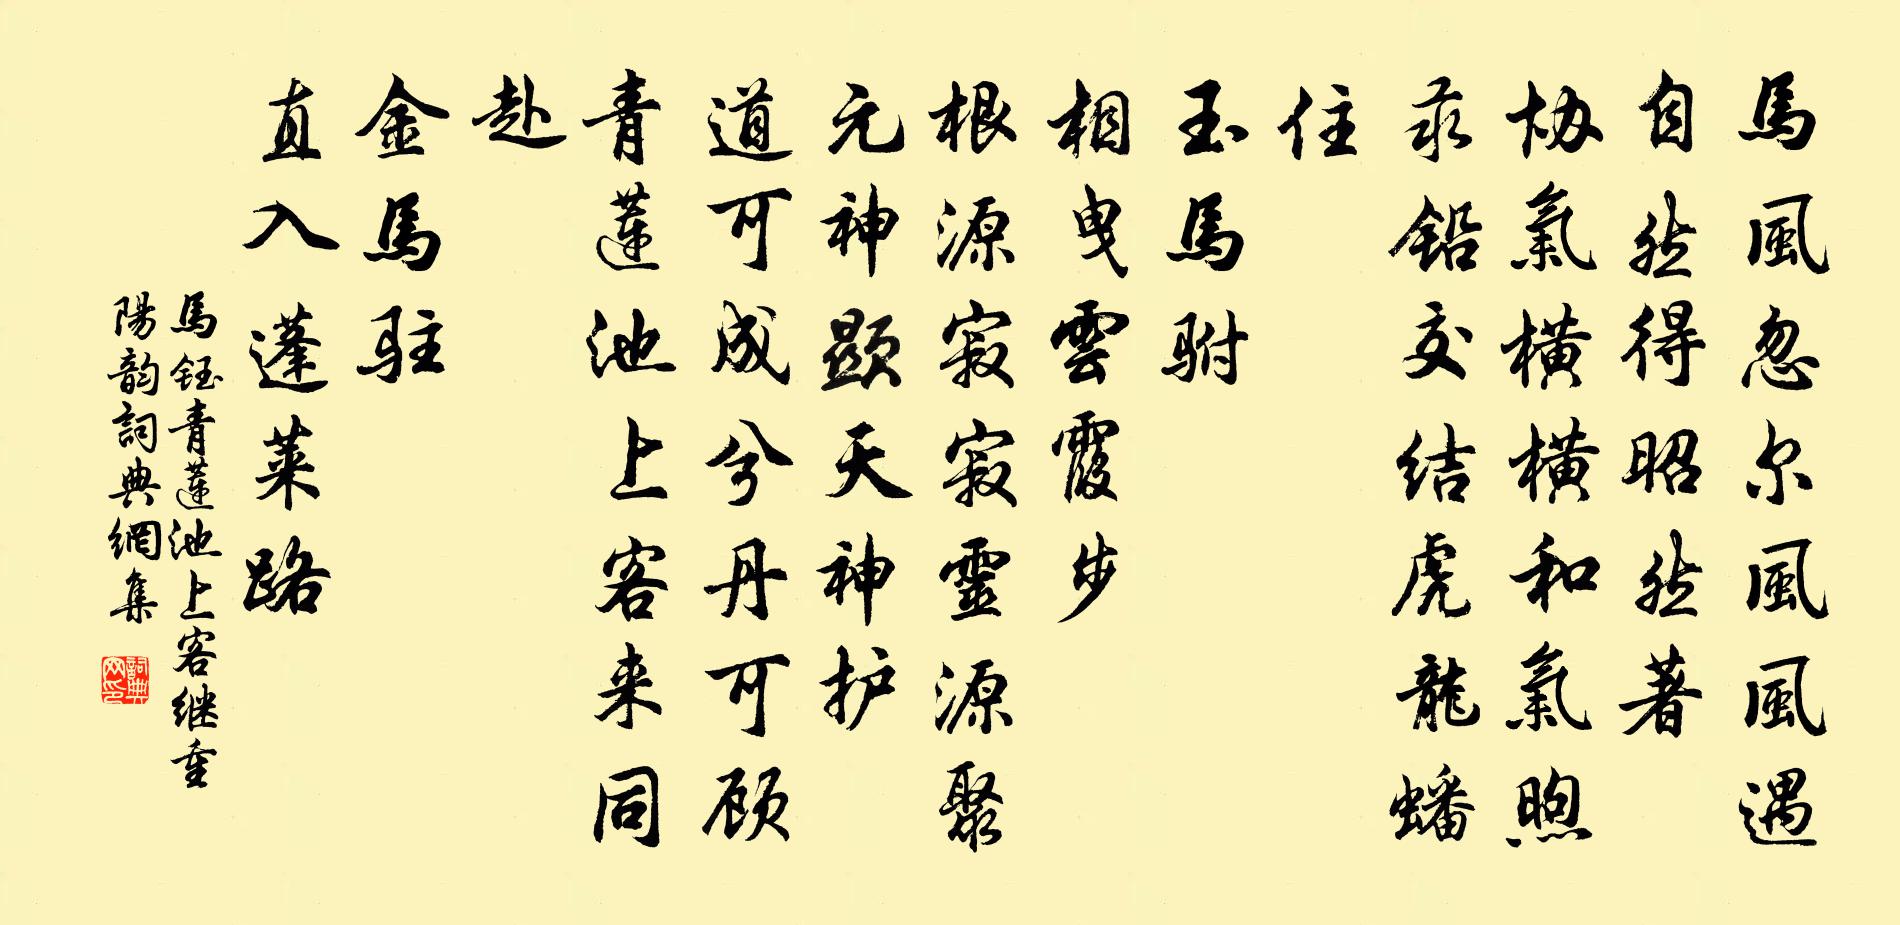 馬風忽尔風風遇
自然得昭然著
协氣橫橫和氣煦
汞鉛交结虎龍蟠
住
玉馬駙
相曳雲霞步
根源寂寂靈源聚
元神顯天神护
道可成兮丹可顾
青蓮池上客来同
赴
金馬驻
直入蓬莱路
馬鈺青蓮池上客继重
陽韵詞典網集
詞典网印